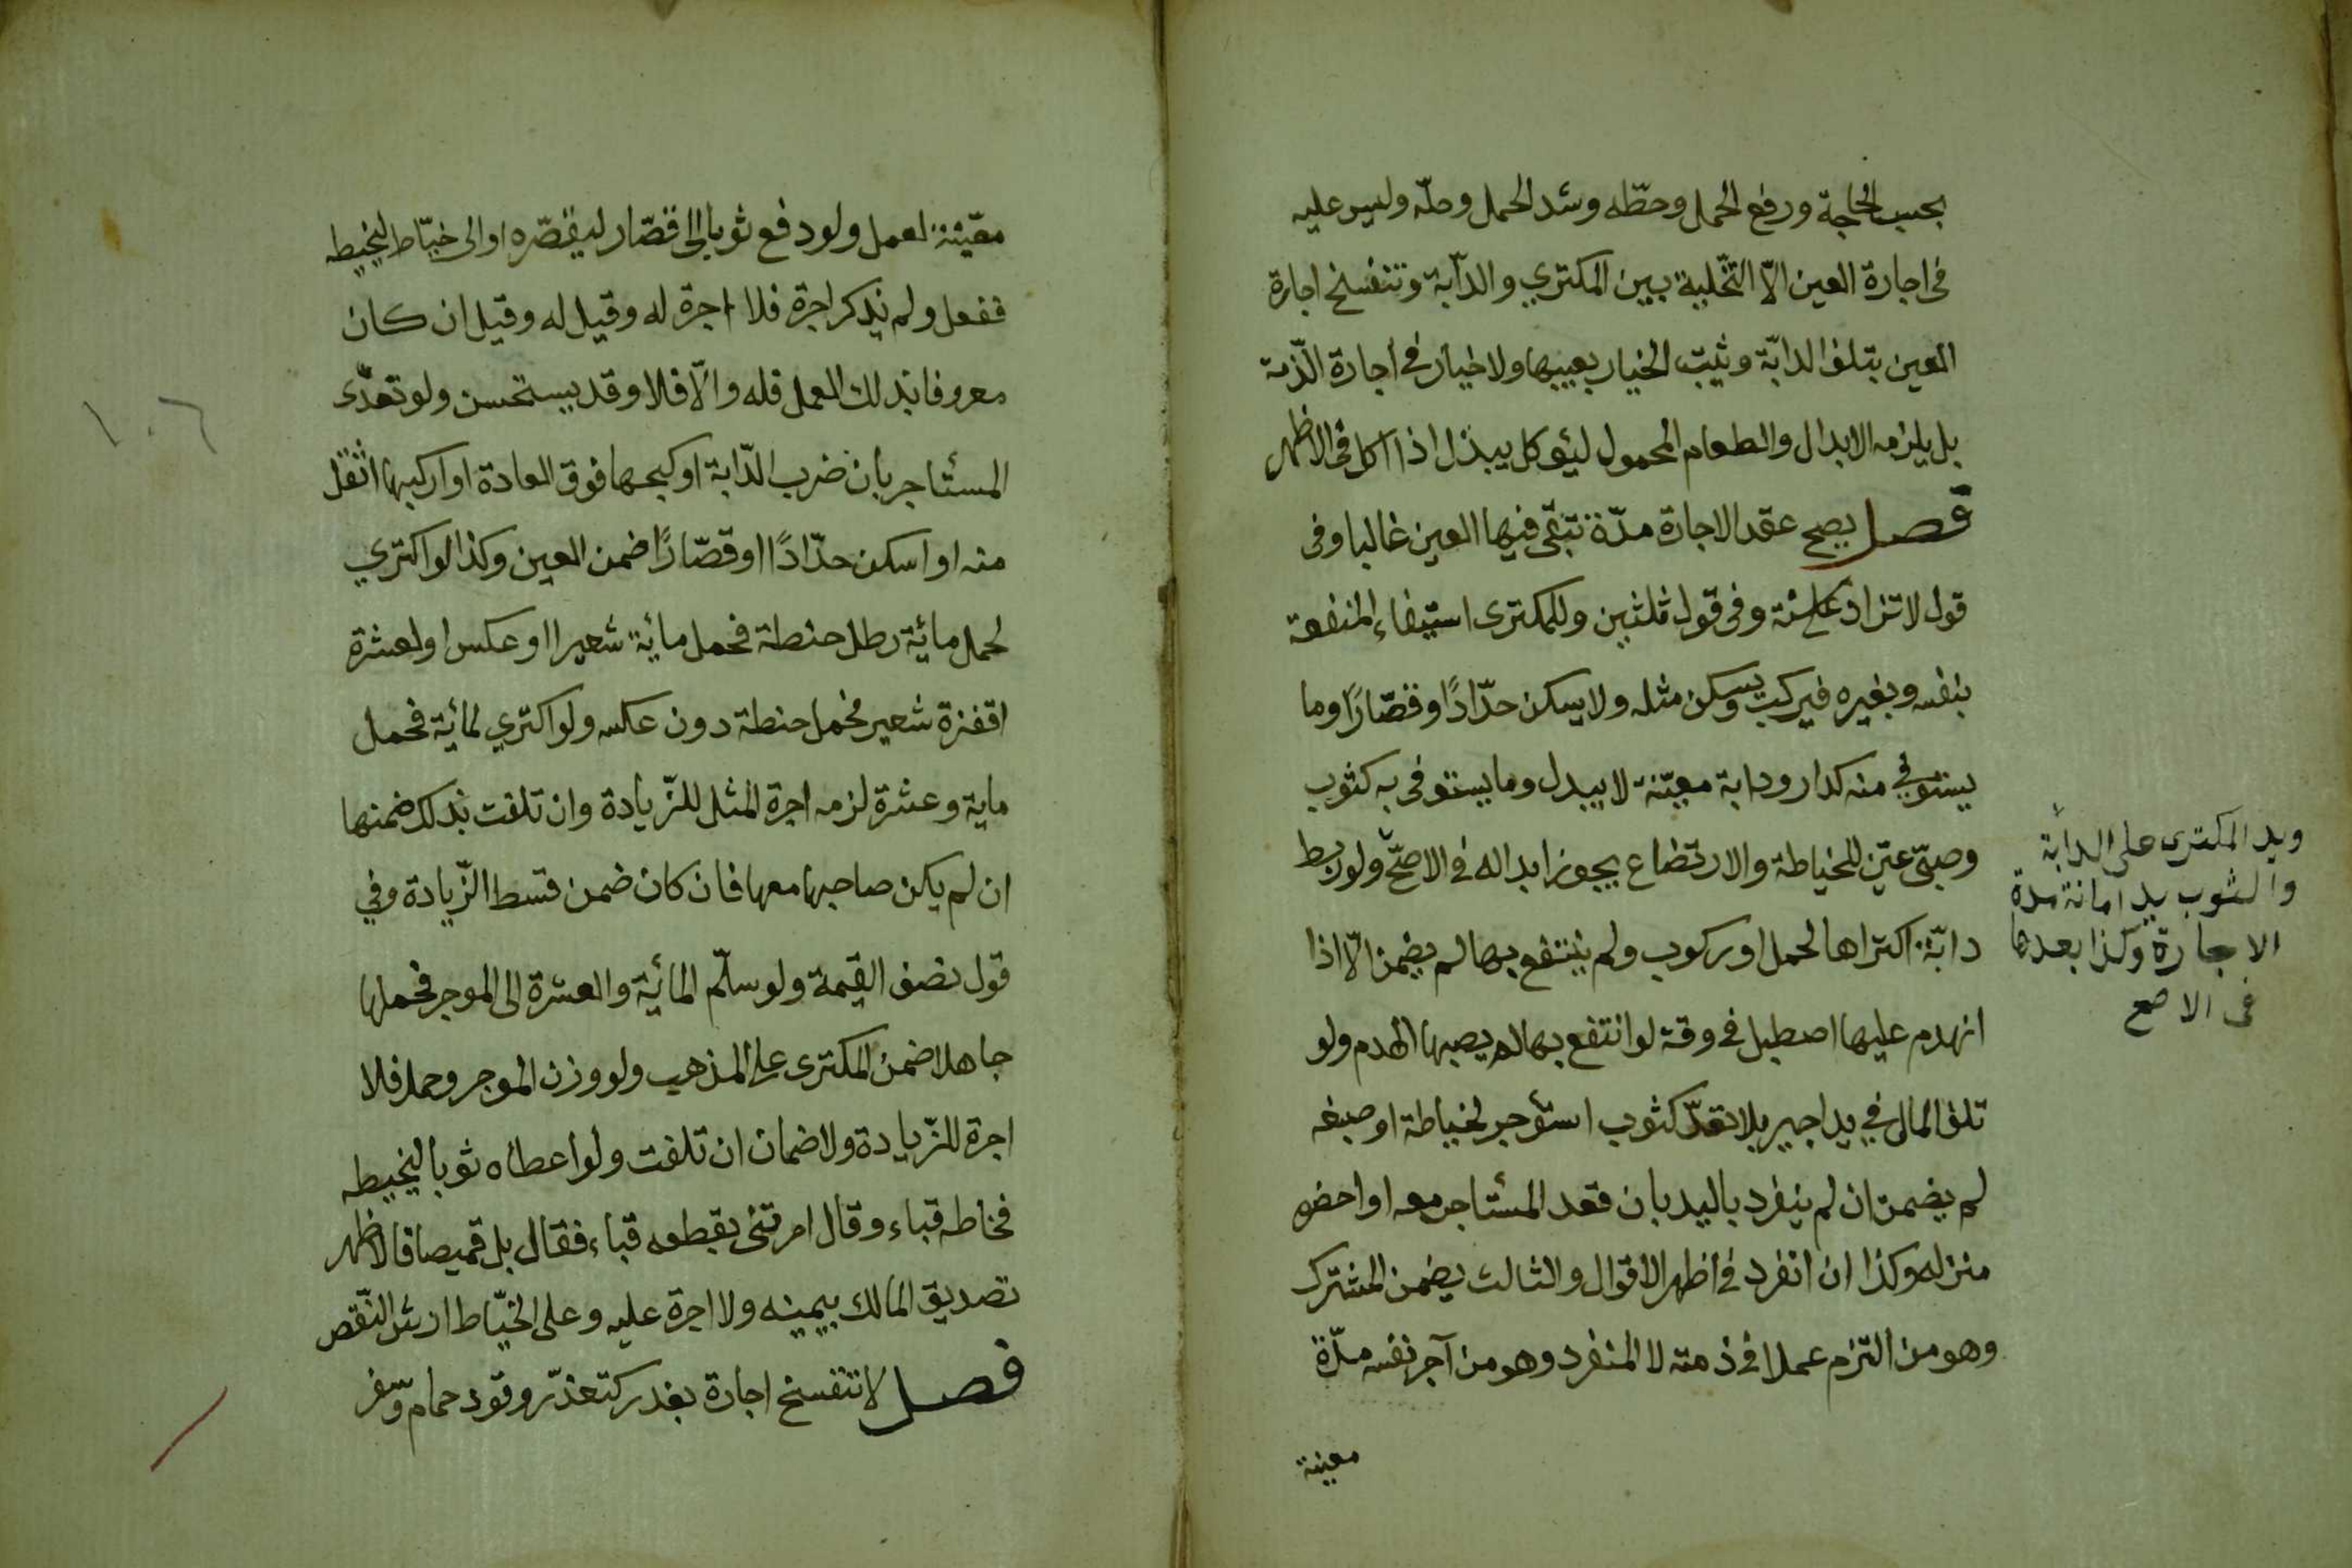 بحسب الحاجة ورفع الحمل وحطّه وشد الحمل وحلّه وليس عليه
فى اجارة العين الّا التّخلية بين المكتري والدّابة وتنفسخ اجارة
العين بتلف الدابّة ويثبت الخيار بعيبها ولا خيار في اجارة الذّمة
بل يلزمه الابدال والطعام المحمول ليؤكل يبدل اذا اكل فى الاظهر
فصل يصح عقد الاجارة مدّة تبقى فيها العين غالبا وفى
قول لا تزاد على سنة وفى قول ثلثين وللمكترى استيفاء المنفعة
بنفسه وبغيره فيركب ويسكن مثله ولا يسكن حدّادًا وقصّارًا وما
يستوفي منه كدار ودابة معيّنة لا يبدل وما يستوفى به كثوب
وصبيّ عيّن للخياطة والارتضاع يجوز ابداله فى الاصحّ ولو ربط
دابّة اكتراها لحمل او ركوب ولم ينتفع بها لم يضمن الّا اذا
انهدم عليها اصطبل في وقت لو انتفع بها لم يصبها الهدم ولو
تلف المال في يد اجير بلا تعدّ كثوب استؤجر لخياطة او صبغه
لم يضمن ان لم ينفرد باليد بان قعد المستاجر معه او احضره
منزله وكذا ان انفرد في اظهر الاقوال والثالث يضمن المشترك
وهو من التزم عملا فى ذمته لا المنفرد وهو من آجر نفسه مدّة
معينة
ويد المكترى على الدابّة
والثوب يد امانة مدة
الاجارة وكذا بعدها
فى الاصح
معيّنة لعمل ولو دفع ثوبا الى قصّار ليقصّره او الى خيّاط ليخيطه
ففعل ولم يذكر اجرة فلا اجرة له وقيل له وقيل ان كان
معروفا بذلك العمل فله والّا فلا وقد يستحسن ولو تعدّى
المستاجر بان ضرب الدّابة او كبحها فوق العادة او اركبها اثقل
منه او اسكن حدّادًا او قصّارًا ضمن العين وكذا لو اكتري
لحمل مائية رطل حنطة فحمل مائية شعيرا او عكس او لعشرة
اقفزة شعير فحمل حنطة دون عكسه ولو اكتري لمائية فحمل
ماية وعشرة لزمه اجرة المثل للزّيادة وان تلفت بذلك ضمنها
ان لم يكن صاحبها معها فان كان ضمن قسط الزّيادة وفي
قول نصف القيمة ولو سلّم المائية والعشرة الى الموجر فحملها
جاهلا ضمن المكترى على المذهب ولو وزن الموجر وحمل فلا
اجرة للزّيادة ولا ضمان ان تلفت ولو اعطاه ثوبا ليخيطه
فخاطه قباء وقال امرتنى بقطعه قباء فقال بل قميصا فالاظهر
تصديق المالك بيمينه ولا اجرة عليه وعلى الخيّاط ارش النّقص
فصل لا تنفسخ اجارة بعذر كتعذّر وقود حمام وسفر
١٠٦